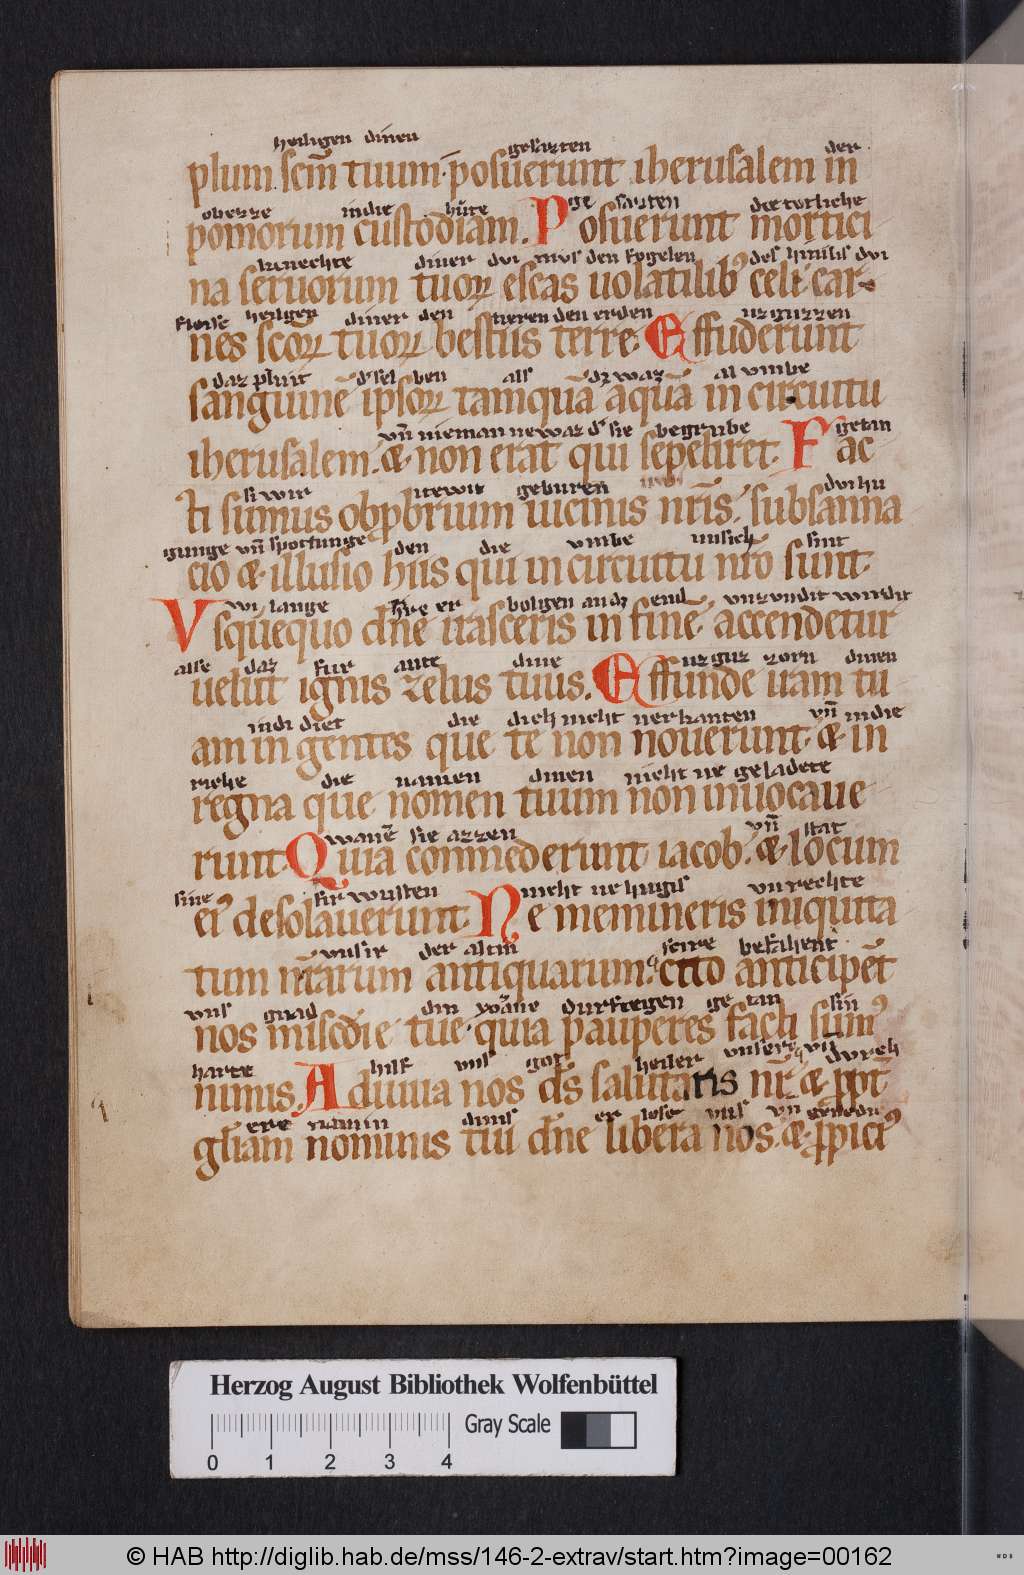 heiligen dinen gesazten der
plum scm̄ tuum· posuerunt iherusalem in
obezze indie hůte ge sazten die totliche
pomorum custodiam. Posuerunt mortici
knechte diner dvi mvs den fogelen des himils dvi
na seruorum tuoꝝ escas uolatilib᷒ celi· car-
fleise heiligen diner den tieren den erden uzguzzen
nes scoꝝ tuoꝝ bestiis terre· Effuderunt
daz plůt d̓ selben als dz waz al vmbe
sanguinē ipsoꝝ tamquā aquā in circuitu
vn̄ nieman newaz d̓ sie begrube getan
iherusalem. & non erat qui sepeliret. Fac
si wir itewit geburen dvi hu
ti sumus obprobrium uicinis nr̄is, subsanna
gunge vn̄ spottunge den die vmbe unsich sint
cio & illusio hiis qui in circuitu nr̄o sunt·
wi lange h̓re er bolgen an dz end vnzvndit wirdit
Vsquequo dn̄e irasceris in finē accendetur
alse daz fur ante dine uzguz zorn dinen
uelut ignis zelus tuus. Effunde iram tu
indi diet die dich nicht nerkanten vn̄ indie
am in gentes que te non nouerunt· & in
riche die namen dinen nicht ne geladete
regna que nomen tuum non inuocaue
wanē sie azzen vn̄ stat
runt· Quia commederiunt iacob. & locum
sine fir wusten nicht ne hugis vnrechte
ei᷒ desolauerunt· Ne memineris iniquita
unsir der altin scire bef̓ahent
tum nr̄arum antiquarum. cito anticipēt
vns gnad din wāne durftegen ge tan sin
nos misc̄die tue· quia pauperes facti sum᷒
harte hilf vns got heiler vnsere vn̄ dvrch
nimis. Adiuua nos ds̄ salutaris nr̄ & ꝓpt̄
ere namin dinis er lose vns vn̄ genedic
gl̄iam nominis tui dn̄e libera nos. & ꝓpici᷒
Herzog August Bibliothek Wolfenbüttel
Gray Scale
0 1 2 3 4
© HAB http://diglib.hab.de/mss/146-2-extrav/start.htm?image=00162